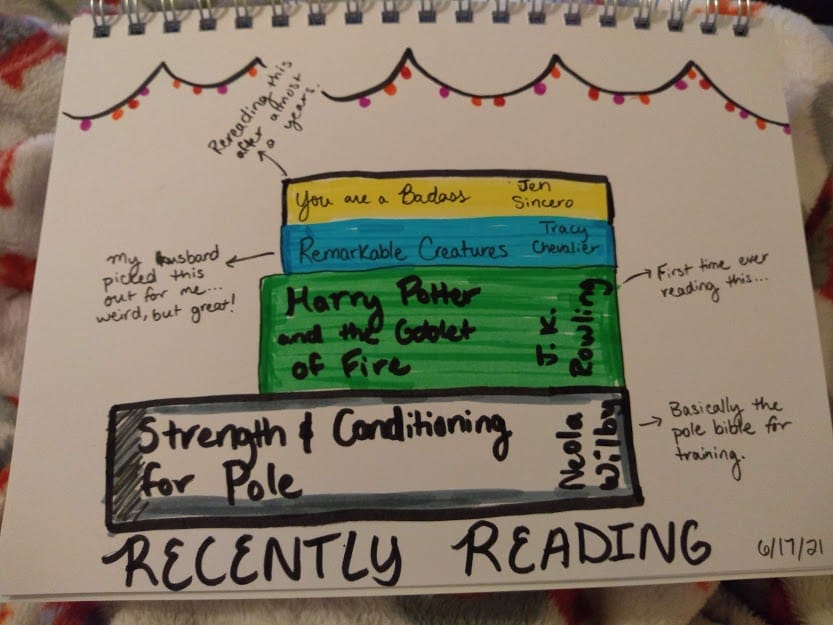 Rereading this
after almost
a years.
You are a Badass
Jen
Sincero
Remarkable Creatures
Tracy
Chevalier
My husband
picked this
out for me...
weird, but great!
Harry Potter
and the Goblet
of Fire
J.K.
Rowling
First time ever
reading this...
Strength & Conditioning
for Pole
Neola
Wilby
Basically the
pole bible for
training.
RECENTLY READING
6/17/21